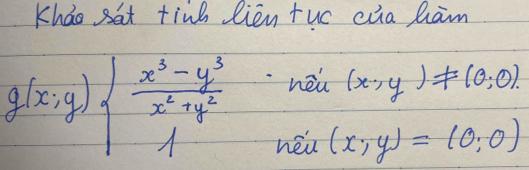 Khảo sát tính liên tục của hàm
g(x;y) { x³ - y³ / x² + y² nếu (x;y) ≠ (0;0).
1 nếu (x;y) = (0;0)